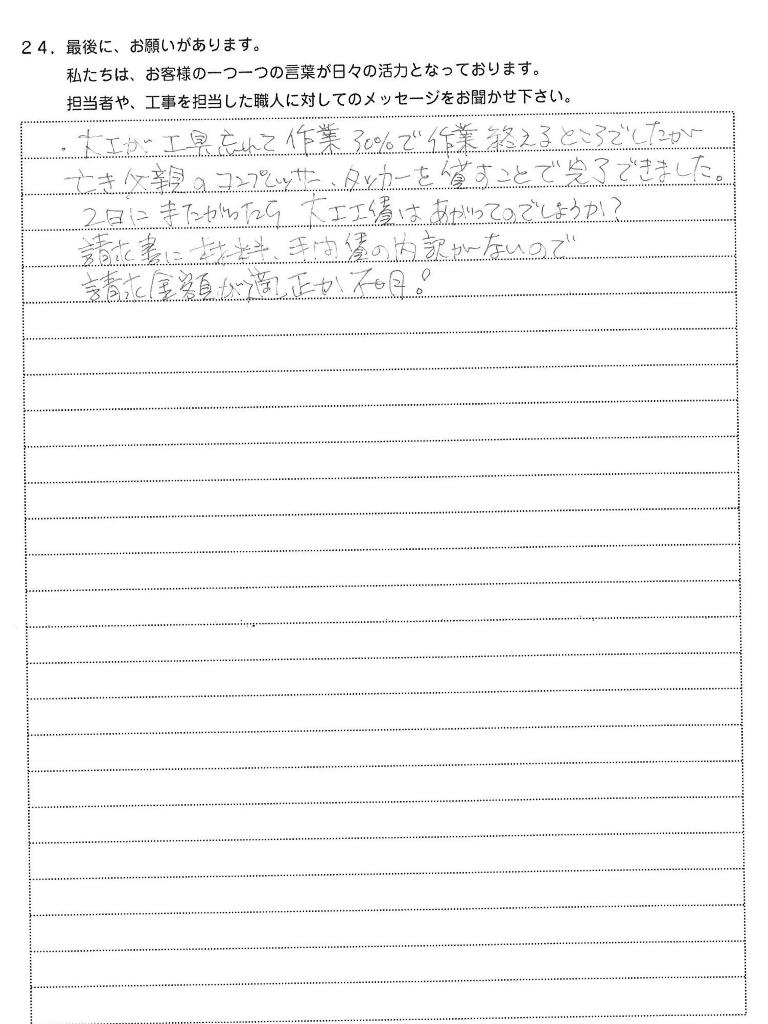 24. 最後に、お願いがあります。
私たちは、お客様の一つ一つの言葉が日々の活力となっております。
担当者や、工事を担当した職人に対してのメッセージをお聞かせ下さい。
・大工が工具忘れて作業30%で作業終えるところでしたが
亡き父親のコンプレッサー、タッカーを貸すことで完了できました。
2日にまたがったら大工工賃はあがってのでしょうか?
請求書に材料、手間賃の内訳がないので
請求金額が適正か不明!